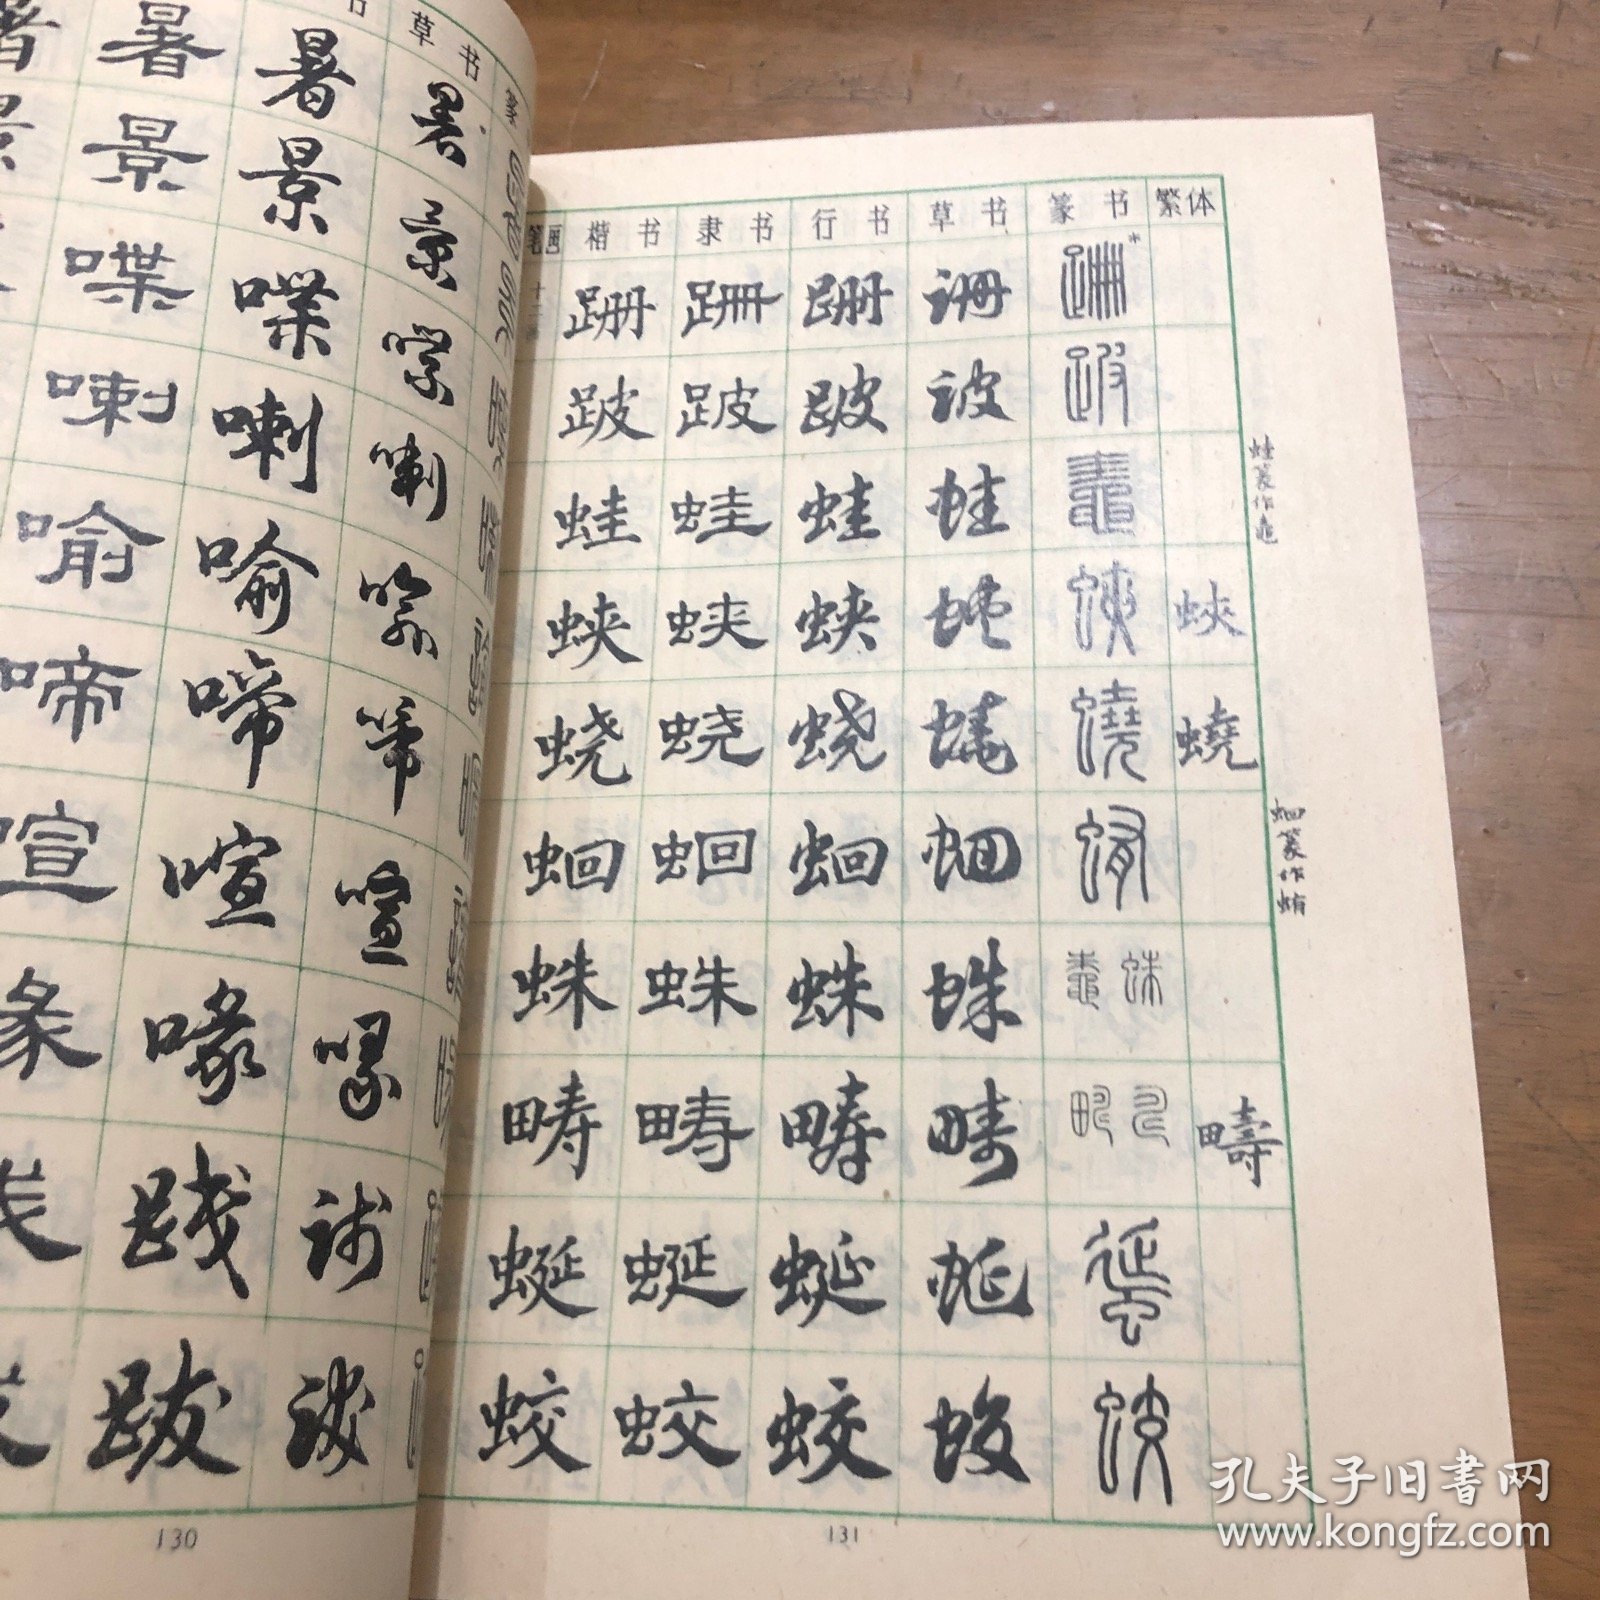 书 草书
暑 暑 暑
景 景 景
喋 喋 喋
喇 喇 喇
喻 喻 喻
啼 啼 啼
喧 喧 喧
喙 喙 喙
践 践 践
跋 跋 跋
130
笔画 楷书 隶书 行书 草书 篆书 繁体
十二画 跚 跚 跚 跚 跚*
跛 跛 跛 跛 跛
蛙 蛙 蛙 蛙 鼃
蛱 蛱 蛱 蛱 蛺 蛺
蛲 蛲 蛲 蛲 蟯 蟯
蛔 蛔 蛔 蛔 蛕
蛛 蛛 蛛 蛛 鼄 蛛
畴 畴 畴 畴 疇
蜒 蜒 蜒 蜒
蛟 蛟 蛟 蛟 蛟
蛙篆作
蛔篆作蛕
131
孔夫子旧书网
www.kongfz.com